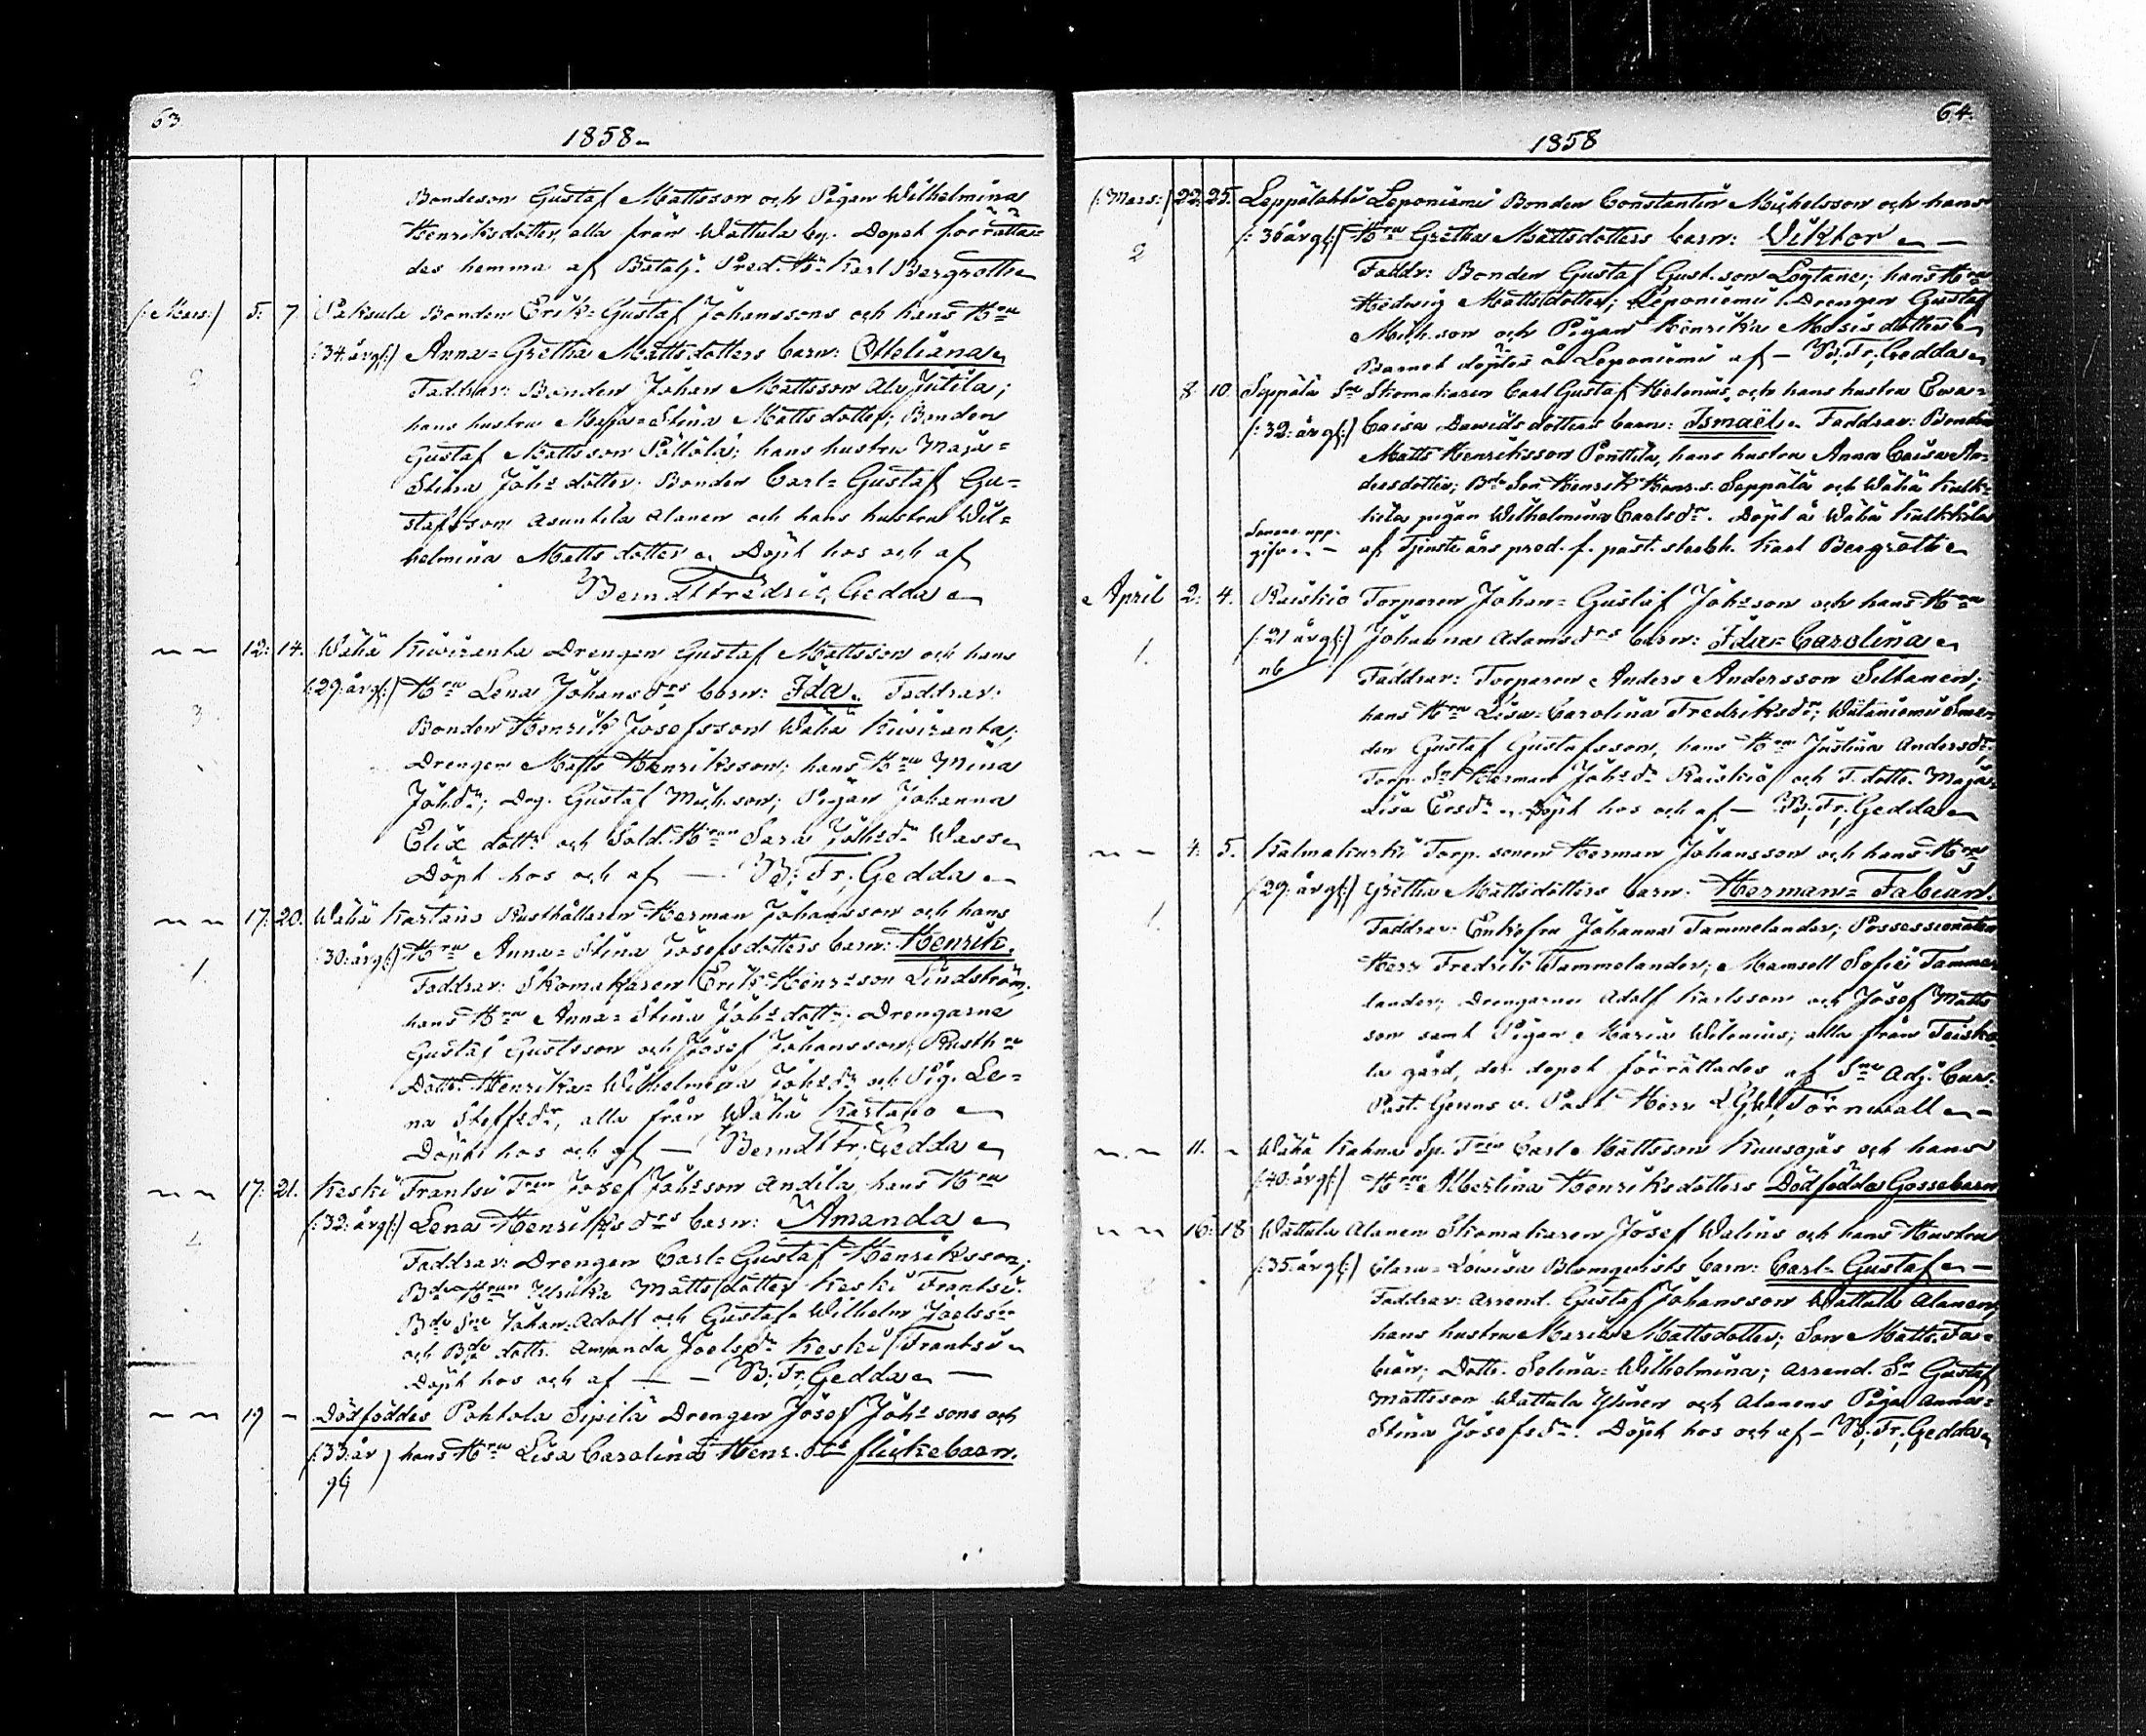 63.
1858.
Bondeson Gustaf Mattsson och Pigan Wilhelmina
Henriksdotter, alla från Wattula by. Dopet förrätta=
des hemma af Batalj. Pred. Hr. Karl Bergroth.
(:Mars:) 5. 7. Paksula Bonden Erik=Gustaf Johanssons och hans Hru
(:34.årgl:) Anna=Gretha Mattsdotters barn: Otteliana.
Faddrar: Bonden Johan Mattsson Ala Jutila;
hans hustru Maja=Stina Mattsdotter; Bonden
Gustaf Mattsson Pöllölä; hans hustru Maja=
Stina Johs dotter; Bonden Carl=Gustaf Gu=
stafsson Asuntila Alanen och hans hustru Wil=
helmina Matts dotter. Döpt hos och af
Berndt Fredric Gedda
12. 14. Wähä Kiwiranta Drengen Gustaf Mattsson och hans
(:29.årgl:) Hru Lena Johansdrs barn: Ida. Faddrar:
3.
Bonden Henrik Josefsson Wähä Kiwiranta;
Drengen Matts Henriksson; hans Hru Mina
Joh.dr; Drg. Gustaf Mich.son; Pigan Johanna
Eliæ dottr och Sold. Hrun Sara Johsdr Wass.
Döpt hos och af — B; Fr; Gedda
17. 20. Wähä Kartano Rusthållaren Herman Johansson och hans
(:30.årgl:) Hru Anna=Stina Josefsdotters barn: Henrik.
1.
Faddrar: Skomakaren Erik Henrs son Lindström;
hans Hru Anna=Stina Johs dottr; Drengarne
Gustaf Gustsson och Josef Johansson; Rusth.
Dottr. Henrika=Wilhelmina Johsdr och Pig. Le=
na Steffsdr, alla från Wähä Kartano
Döpt hos och af — Berndt Fr; Gedda
17. 21. Keski Frantsi Josef Johsson Andila, hans Hru
(:32.årgl:) Lena Henriksdrs barn: Amanda
Faddrar: Drengen Carl=Gustaf Henriksson;
Bde Hrun Ulrika Mattsdotter Keski Frantsi;
Johan=Adolf och Gustaf=Wilhelm
och Bde dottr. Amanda Joelsdr Keski Frantsi
Döpt hos och af — B; Fr; Gedda —
19 — Dödföddes Pohtola Sipilä Drengen Josef Johs sons och
(:33.år hans Hru Lisa Carolina Henr. dts flickebarn.
gl:)
64.
1858
(:Mars:) 22. 25. Leppälahti Leponiemi Bonden Constantin Michelsson och hans
(:36årgl:) Hru Gretha Mattsdotters barn: Viktor —
2
Faddr: Bonden Gustaf Gust.son; hans Hru
Hedvig Mattsdotter; Leponiemi Drengen Gustaf
Mich.son och Pigan Henrika Mosisdotter
Barnet döptes å Leponiemi af — B; Fr; Gedda
8. 10. Seppälä Sn Skomakaren Carl Gustaf Helenius, och hans hustru Ewa=
(:32.årgl:) Caisa Davidsdotters barn: Ismaël. Faddrar: Bonden
Matts Henriksson Penttilä, hans hustru Anna Caisa An=
dersdotter; Bde Son Henrik Henr.s. Seppälä och Wähä Kulk=
kila pigan Wilhelmina Carlsdr. Döpt å Wähä Kulkkila
Senare upp=
gifv. — af Tjenstårs pred. f. past. stadsk. Karl Bergroth
April 2. 4. Raiskio Torparen Johan=Gustaf Johsson och hans Hru
(:21årgl:) Johanna Adamsdrs barn: Ida=Carolina
1.
nb
Faddrar: Torparen Anders Andersson Siltanen;
hans Hru Lisa=Carolina Fredriksdr; Wätäniemi
den Gustaf Gustafsson, hans Hru Justina Andersdr;
Torp. Sn Herman Johsdr Raiskio och T. dottr. Maja=
Lisa Ersdr. Döpt hos och af — B; Fr; Gedda
4. 5. Kalmakurki Torp. sonen Herman Johansson och hans Hru
(:29.årgl:) Gretha Mattsdotters barn: Herman=Fabian.
1.
Faddrar: Enkefru Johanna Tammelander; Possessionaten
Herr Fredrik Tammelander; Mamsell Sofie Tamme=
lander; Drengarne Adolf Karlsson och Josef Matts
son samt Pigan Maria Wilenius; alla från Toisko=
la gård, der dopet förrättades af Adj. Cur.
Past. Gerens v. Past Herr Törnwall —
11. — Wähä Kahna Sp. Carl Mattsson Kuusojas och hans
(:40.årgl:) Hru Albertina Henriksdotters Dödfödda Gossebarn
16. 18 Wattula Alanen Skomakaren Josef Walins och hans Hustru
(:35.årgl:) Clara=Lowisa Blomqvists barn: Carl=Gustaf —
Faddrar: Arrend. Gustaf Johansson Wattula Alanen,
hans hustru Maria Mattsdotter; Son Matts Fa=
bian; Dottr. Selina=Wilhelmina; arrend. Sn Gustaf
Mattsson Wattula Ylinen och Alanens Piga Anna=
Stina Josefsdr. Döpt hos och af — B. Fr; Gedda